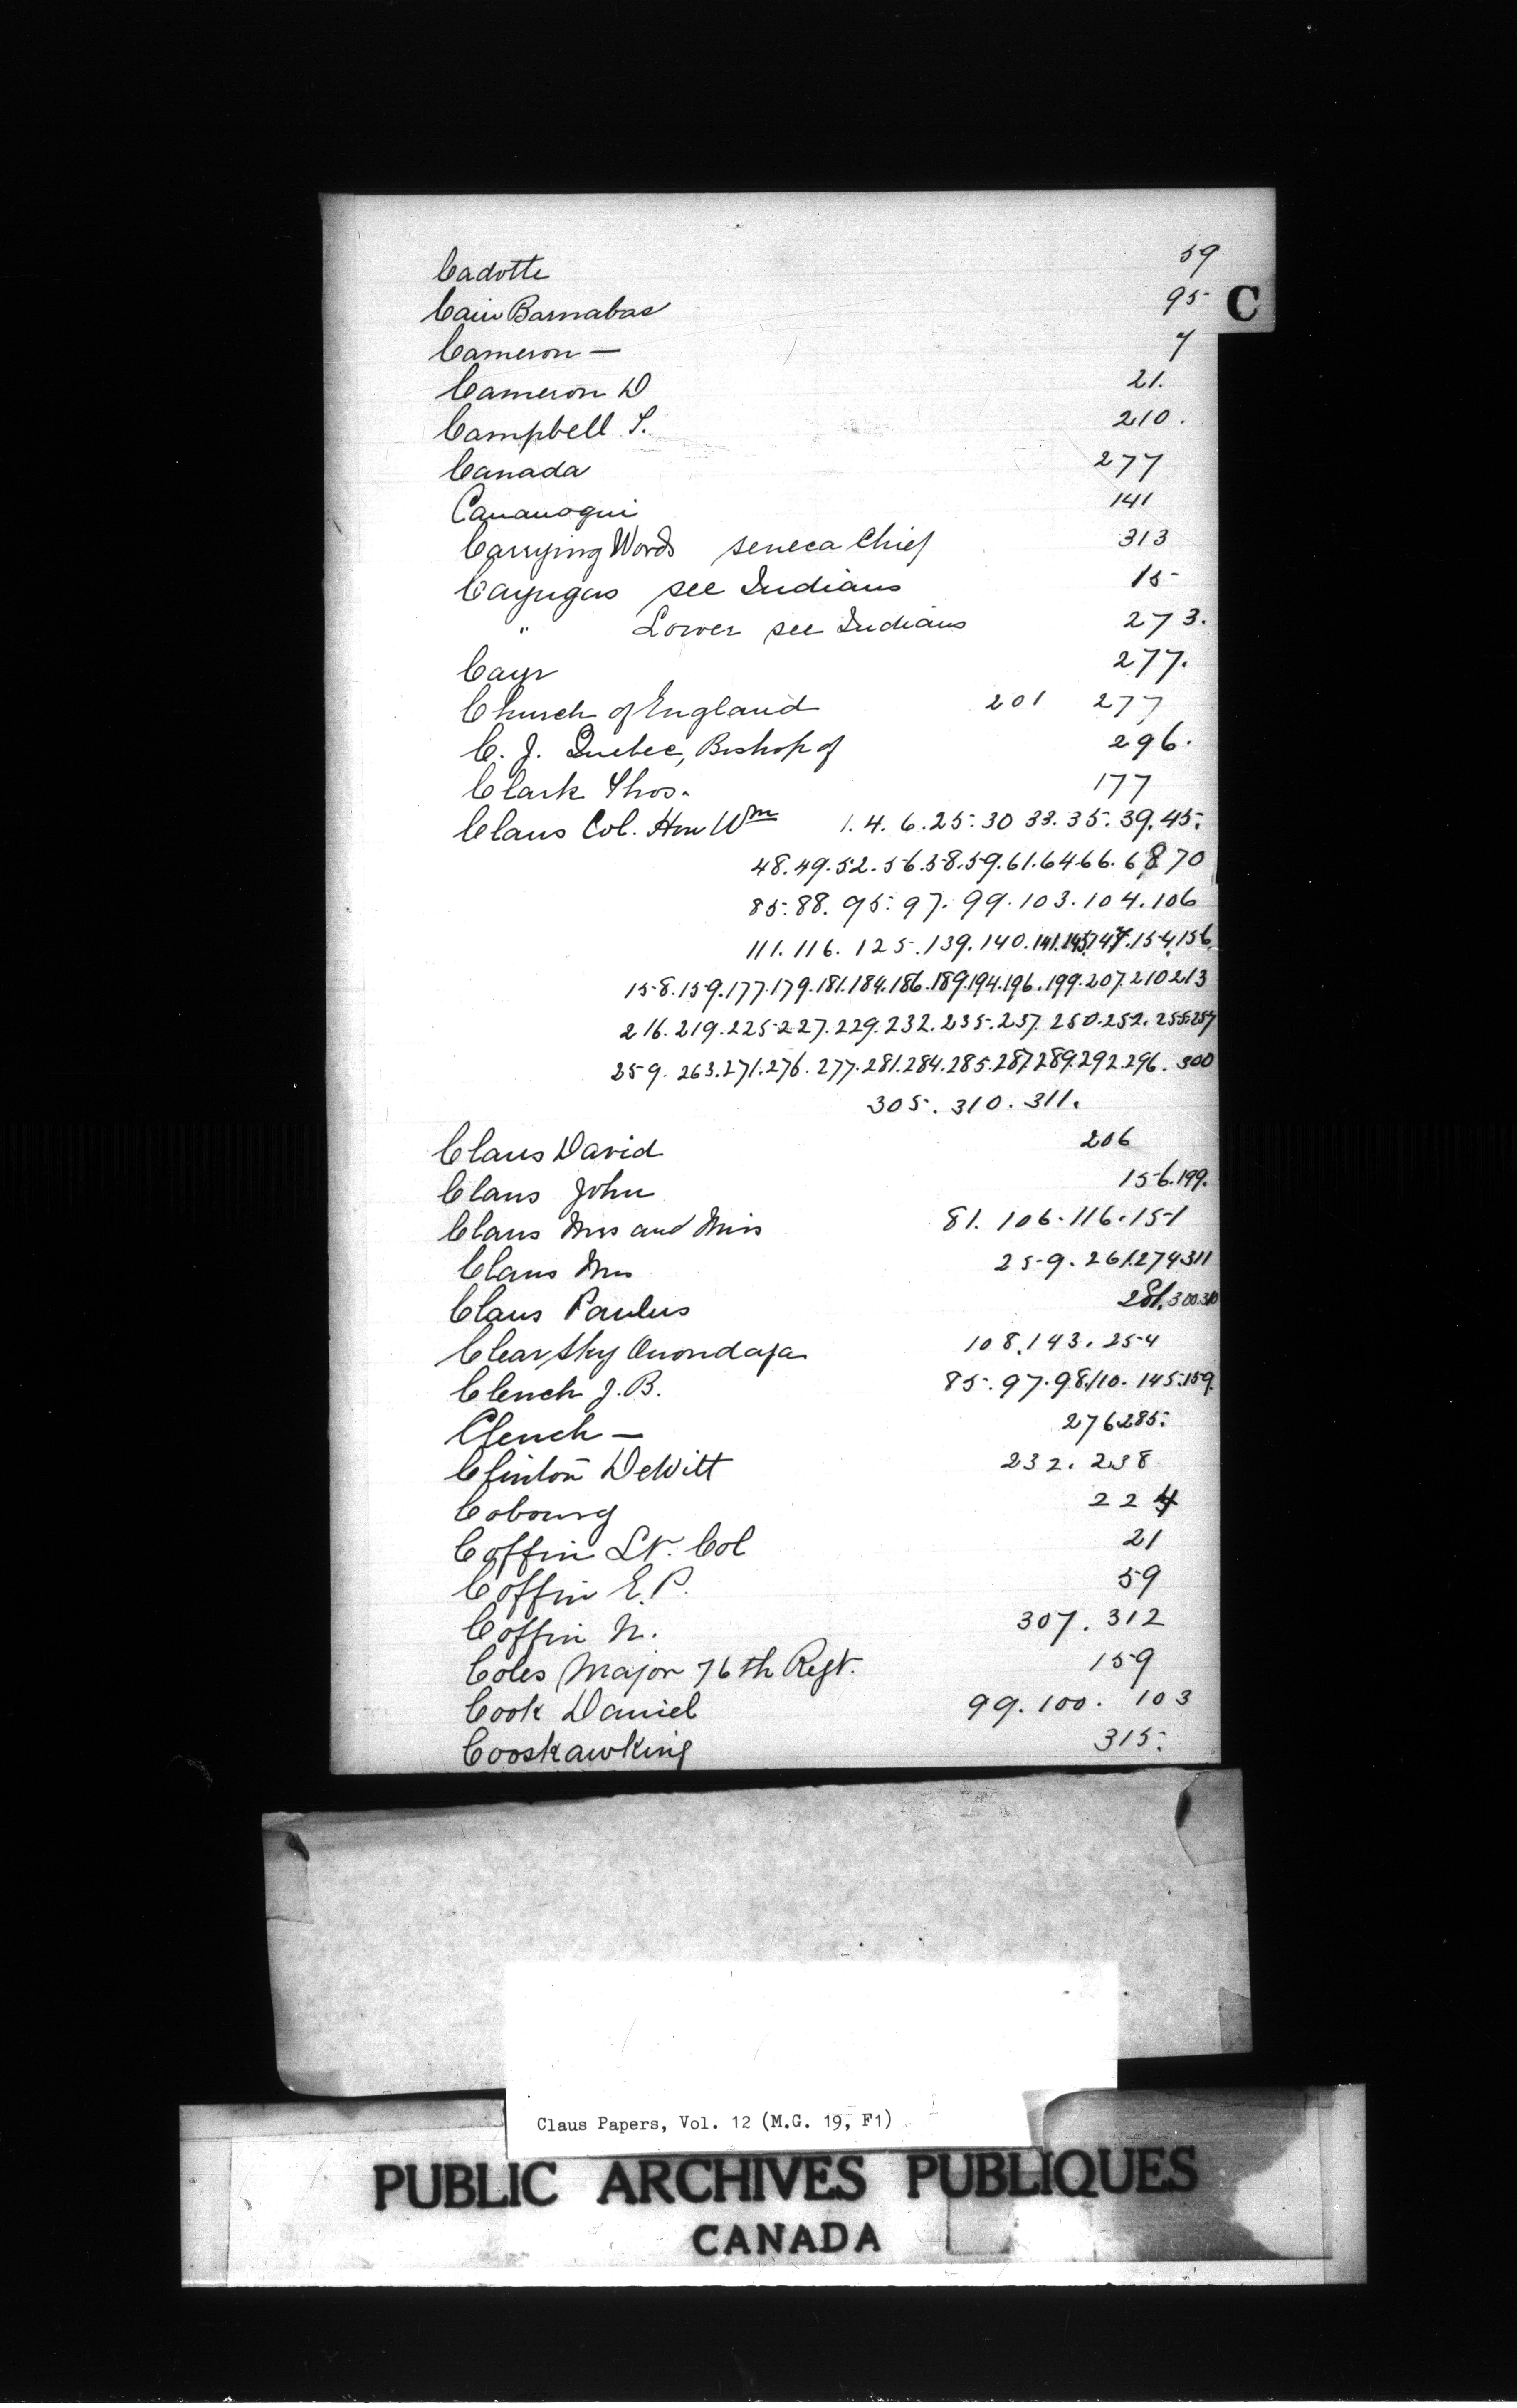 Cadotte 59
C
Cain Barnabas 95
Cameron — 7
Cameron D 21.
Campbell S. 210.
Canada 277
Cananoqui 141
Carrying Words Seneca Chief 313
Cayugas see Indians 15
" Lower see Indians 273.
Cayr 277.
Church of England 201 277
C. J. Quebec, Bishop of 296.
Clark Thos. 177
Claus Col. Hon Wm 1. 4. 6. 25. 30 33. 35. 39. 45.
48. 49. 52. 56. 58. 59. 61. 64 66. 68 70
85. 88. 95. 97. 99. 103. 104. 106
111. 116. 125. 139. 140. 141. 145 147. 154. 156.
158. 159. 177. 179. 181. 184. 186. 189. 194. 196. 199. 207. 210 213
216. 219. 225 227. 229. 232. 235. 237. 250. 252. 255. 257
259. 263. 271. 276. 277. 281. 284. 285. 287 289. 292. 296. 300
305. 310. 311.
Claus David 206
Claus John 156. 199.
Claus Mrs and Miss 81. 106. 116. 151
Claus Mrs 259. 261. 274 311
Claus Paulus 281. 300 310
Clear Sky Onondaga 108. 143. 254
Clench J. B. 85. 97. 98. 110. 145. 159.
Clench — 276 285.
Clinton DeWitt 232. 238
Cobourg 224
Coffin Lt. Col 21
Coffin E. P. 59
Coffin N. 307. 312
Coles Major 76th Regt. 159
Cook Daniel 99. 100. 103
Cooskawking 315.
Claus Papers, Vol. 12 (M.G. 19, F1)
PUBLIC ARCHIVES PUBLIQUES
CANADA